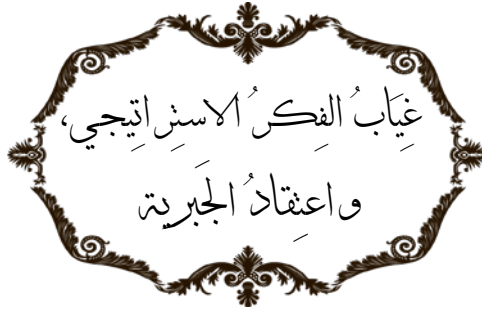 غِيَابُ الفِكرُ الاستِراتِيجي،
واعتِقادُ الجَبرية